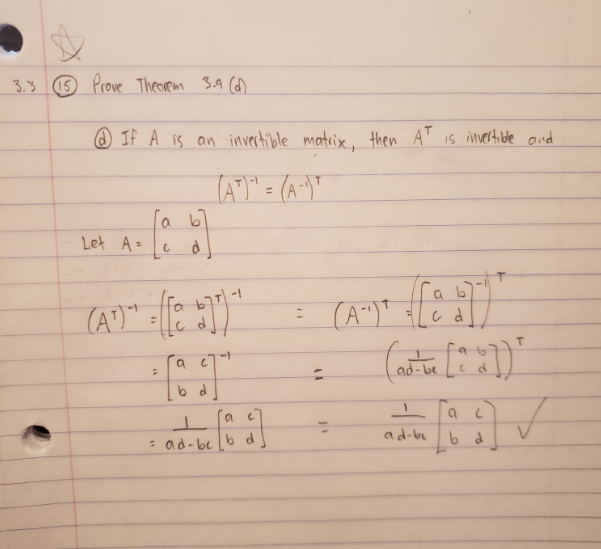 3.3 (15) Prove Theorem 3.9 (d)
(d) If A is an invertible matrix, then A^T is invertible and
(A^T)^-1 = (A^-1)^T
Let A = [a b; c d]
(A^T)^-1 = ([a b; c d]^T)^-1 = (A^-1)^T = ([a b; c d]^-1)^T
= [a c; b d]^-1 = (1/ad-bc [a b; c d])^T
= 1/ad-bc [a c; b d] = 1/ad-bc [a c; b d] ✓